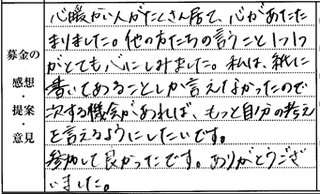 募金の
感想
・
提案
・
意見
心暖かい人がたくさん居て、心があたた
まりました。他の方たちの言うこと1つ1つ
がとても心にしみました。私は、紙に
書いてあることしか言えなかったので
次する機会があれば、もっと自分の考え
を言えるようにしたいです。
参加して良かったです。ありがとうござ
いました。